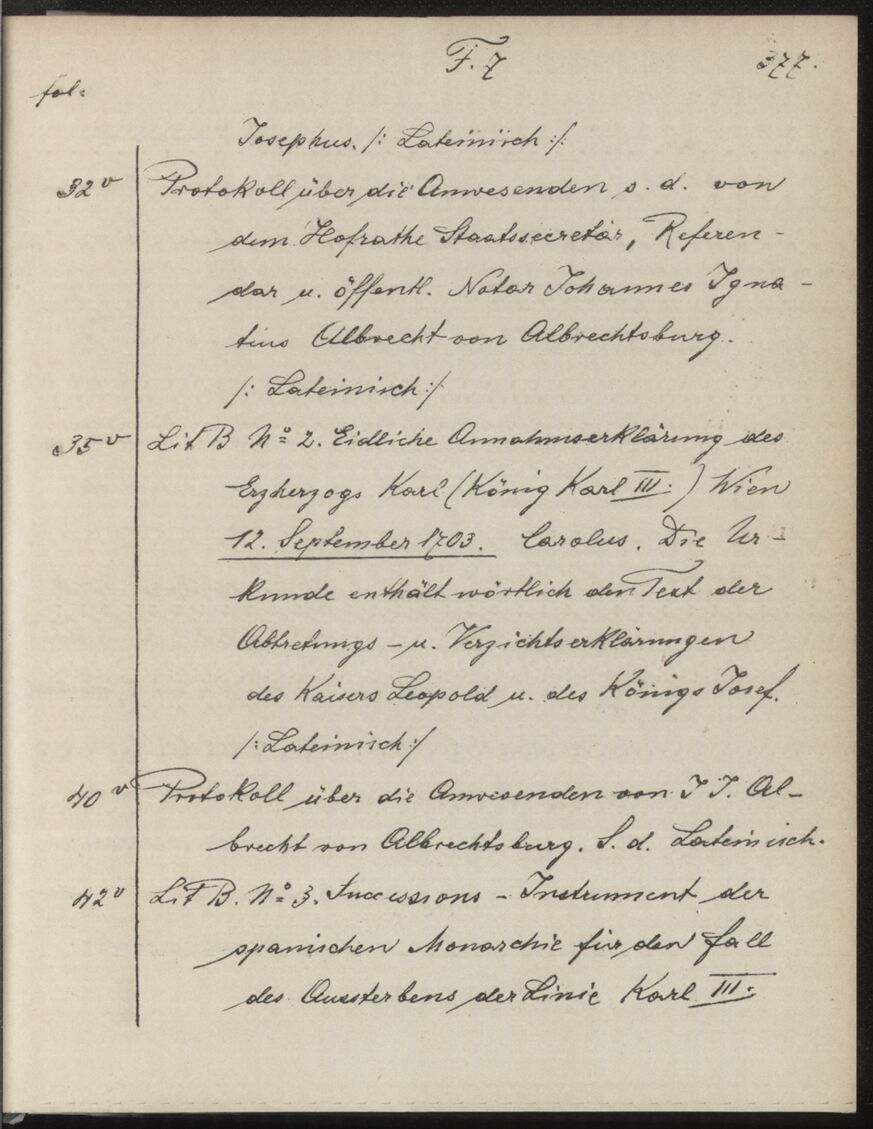 F. 7 377.
fol.
Josephus. /: Lateinisch :/
32v Protokoll über die Anwesenden s. d. von
dem Hofrathe Staatssecretär, Referen-
dar u. öffentl. Notar Johannes Igna-
tius Albrecht von Albrechtsburg.
/: Lateinisch :/
35v Lit B No 2. Eidliche Annahmserklärung des
Erzherzogs Karl (König Karl III.) Wien
12. September 1703. Carolus. Die Ur-
kunde enthält wörtlich den Text der
Abtretungs- u. Verzichtserklärungen
des Kaisers Leopold u. des Königs Josef.
/: Lateinisch :/
40v Protokoll über die Anwesenden von J J. Al-
brecht von Albrechtsburg. S. d. Lateinisch.
42v Lit B. No 3. Successions-Instrument der
spanischen Monarchie für den Fall
des Aussterbens der Linie Karl III.